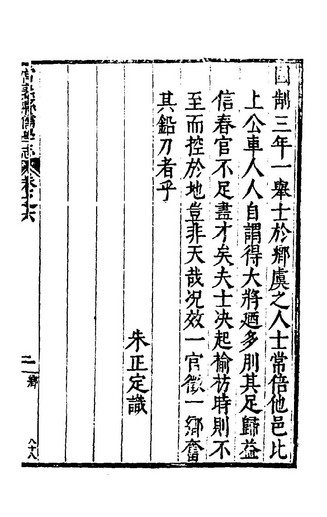 國制三年一舉士於鄉虞之人士常倍他邑比
上公車人人自謂得大將迺多刖其足歸益
信春官不足盡才矣夫士决起榆枋時則不
至而控於地豈非天哉况效一官徵一鄉奮
其鉛刀者乎
朱正定識
常熟縣儒學志
卷之六
二
鄉
八十八